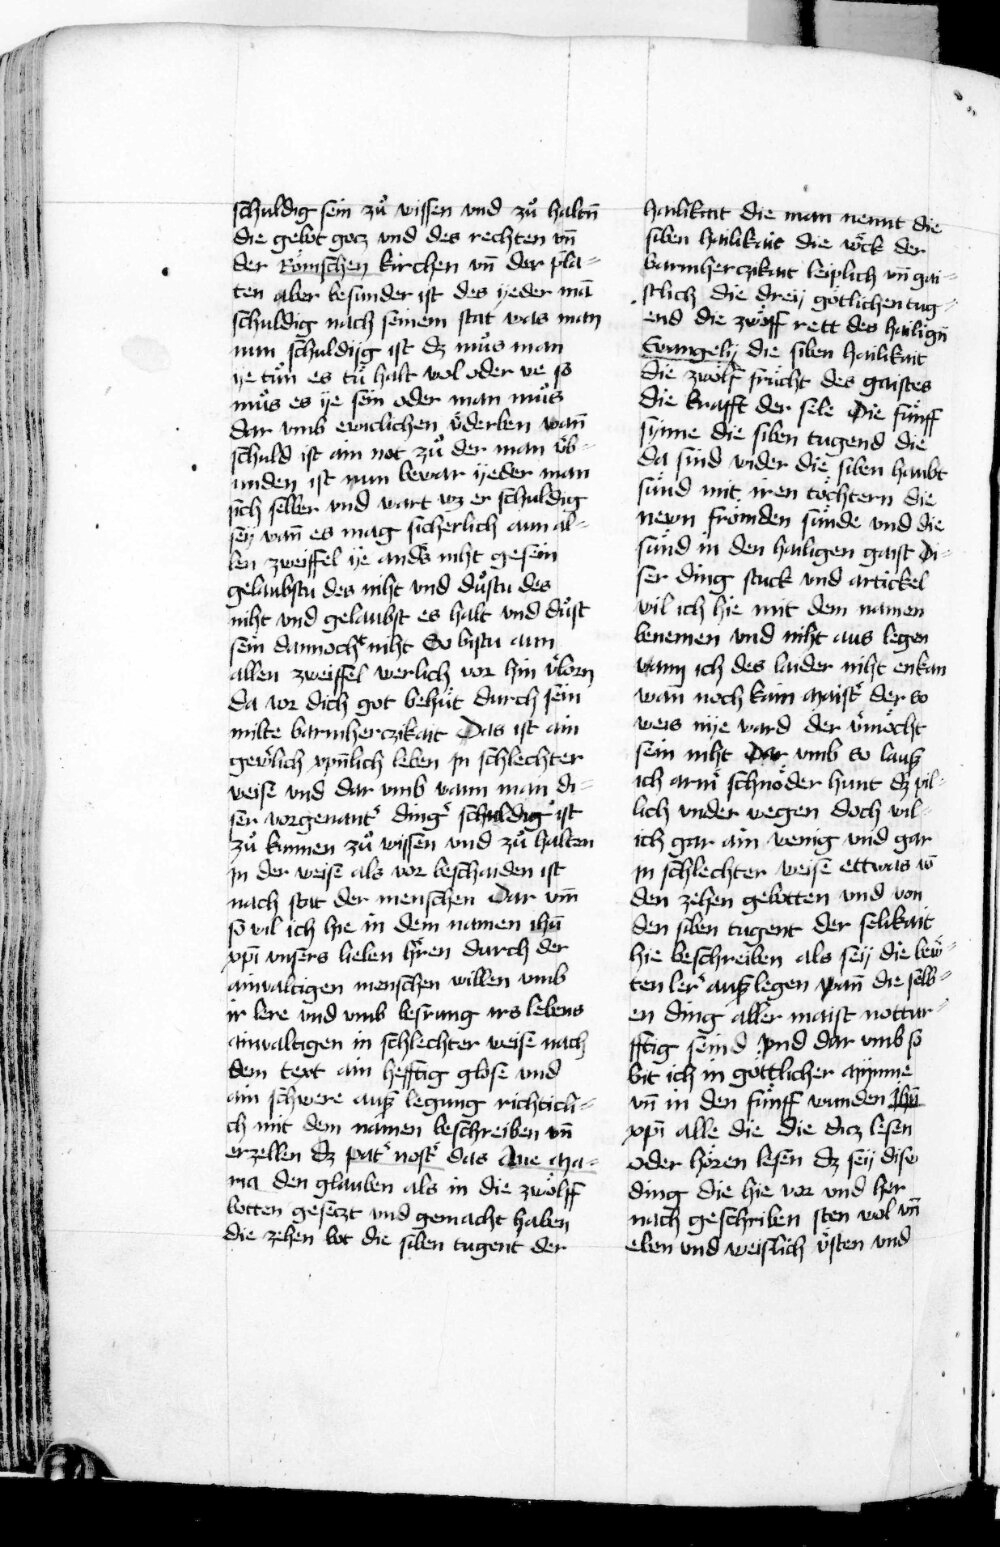 schuldig sein zů wissen vnd zů haltn̄
die gebot gocz vnd des rechten vn̄
der Römschen kirchen vn̄ der pla-
ten aber besunder ist des yeder mā
schuldig nach seinem stat was man
nun schuldijg ist dz můs man
ye tůn es tů halt wol oder we so
můs es ye sein oder man můs
dar vmb ewiclichen v̓derben wan̄
schuld ist ain not zů der man v̓b-
unden ist nun bewar yeder man
sich selber vnd wart wz er schuldig
sey wan̄ es mag sicherlich aun al-
len zweiffel ye anders niht gesein
gelaubstu des niht vnd důstu des
niht vnd gelaubst es halt vnd důst
sein dannocht niht So bistu aun
allen zweiffel werlich vor hin v̓lorn
da vor dich got behüt durch sein
milte barmherczikait Das ist ain
gewͤrlich xp̄nlich leben Jn schlechter
weise vnd dar vmb wann man di-
ser vorgenant̓ ding̓ schuldig ist
zů kunnen zů wissen vnd zů halten
Jn der weise als vor beschaiden ist
nach stat der menschen Dar vm̄
so wil ich hie in dem namen ihū
xp̄i vnsers lieben hr̄en durch der
ainvaltigen menschen willen vmb
ir lere vnd vmb besrung irs lebens
ainvaltigen in schlechter weise nach
dem text ain hefftig glose vnd
ain schwere ausz legung richticli-
ch mit dem namen beschreiben vn̄
erzellen dz pat̓ nost̓ das Aue Ma-
ria den glauben als in die zwölff
botten gesetzt vnd gemacht haben
die zehen bot die siben tugent der
hailikait die man nennt die
siben hailikait die wöck der
barmherczikait leiplich vn̄ gai-
stlich die drey götlichen tug-
end die zwölff rett des hailign̄
Evangelij die siben hailikait
die zwölf frücht des gaistes
die krafft der sele Die fünff
synne die siben tugend die
da sind wider die siben haubt
sünd mit iren töchtern die
newn frömden sünde vnd die
sünd in den hailigen gaist Di-
ser ding stuck vnd artickel
wil ich hie mit dem namen
benemen vnd niht aus legen
wann ich des laider niht enkan
wan noch kain maist̓ der so
weis nye ward der v̓möcht
sein niht Dar vmb so lausz
ich arm̓ schnöder hunt dz pil-
lich vnder wegen doch wil
ich gar ain wenig vnd gar
Jn schlechter weise ettwas vō
den zehen gebotten vnd von
den siben tugent der selikait
hie beschreiben als sey die bewͤ-
ten ler̓ ausz legen Wan̄ die selb-
en ding aller maist nottur-
fftig seind Vnd dar vmb so
bit ich in göttlicher mynne
vn̄ in den fünff wunden Ihū
xp̄i alle die die dicz lesen
oder hören lesen dz sey dise
ding die hie vor vnd her
nach geschriben sten wol vn̄
eben vnd weislich v̓sten vnd